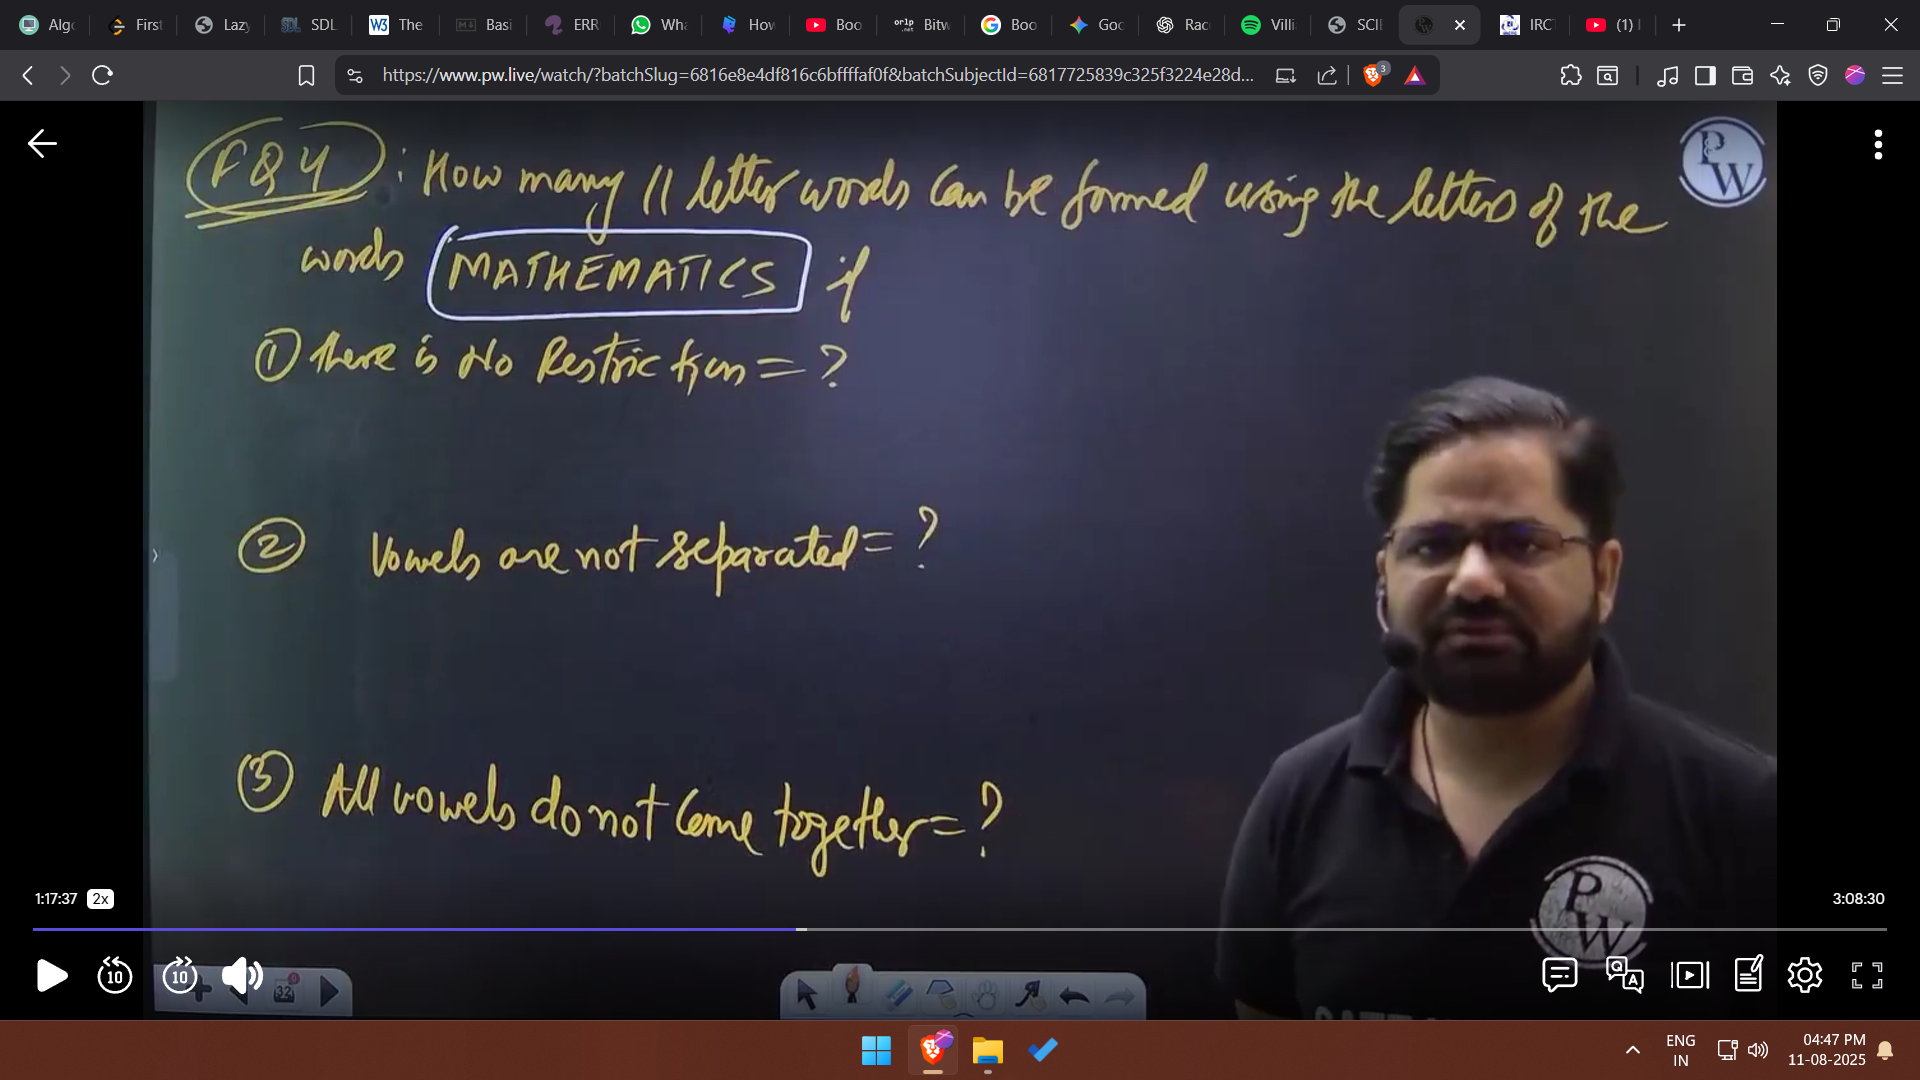 Algo
First
Lazy
SDL
The
Basi
ERR
Wha
How
Boo
Bitw
Boo
Goo
Rac
Villi
SCIE
IRCT
(1)
https://www.pw.live/watch/?batchSlug=6816e8e4df816c6bffffaf0f&batchSubjectId=6817725839c325f3224e28d...
3
FQ4 : How many 11 letter words can be formed using the letters of the
words MATHEMATICS if
PW
① there is No Restriction = ?
② Vowels are not separated = ?
③ All vowels do not come together = ?
PW
1:17:37 2x
3:08:30
10
10
32
ENG
IN
04:47 PM
11-08-2025